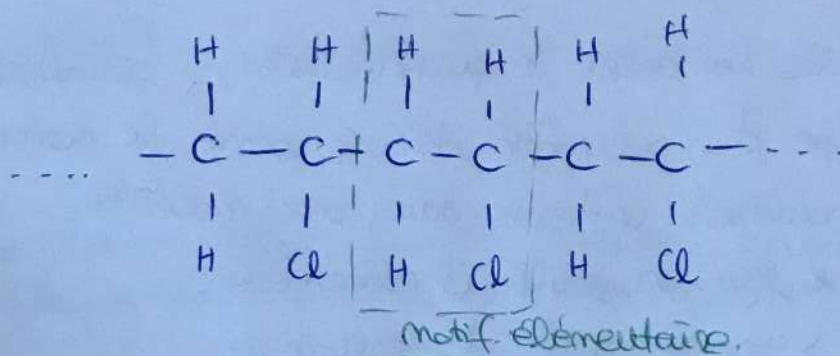 H H H H H H
.... – C – C – C – C – C – C – ....
H Cl H Cl H Cl
motif élémentaire.